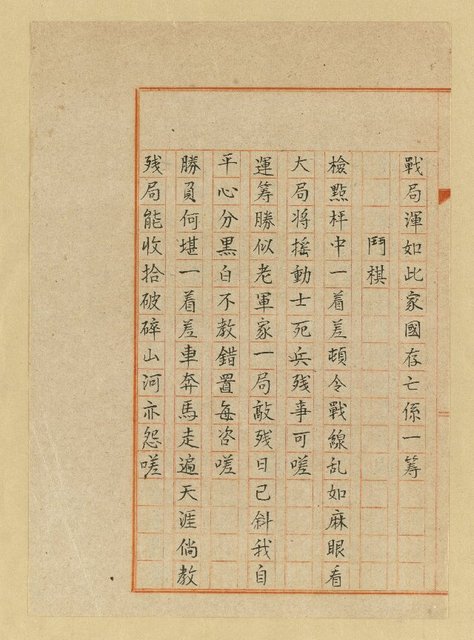 戰局渾如此家國存亡係一筹
鬥棋
檢點枰中一着差頓令戰線乱如麻眼看
大局将摇動士死兵残事可嗟
運筹勝似老軍家一局敲残日已斜我自
平心分黑白不教錯置每咨嗟
勝負何堪一着差車奔馬走遍天涯倘教
残局能收拾破碎山河亦怨嗟